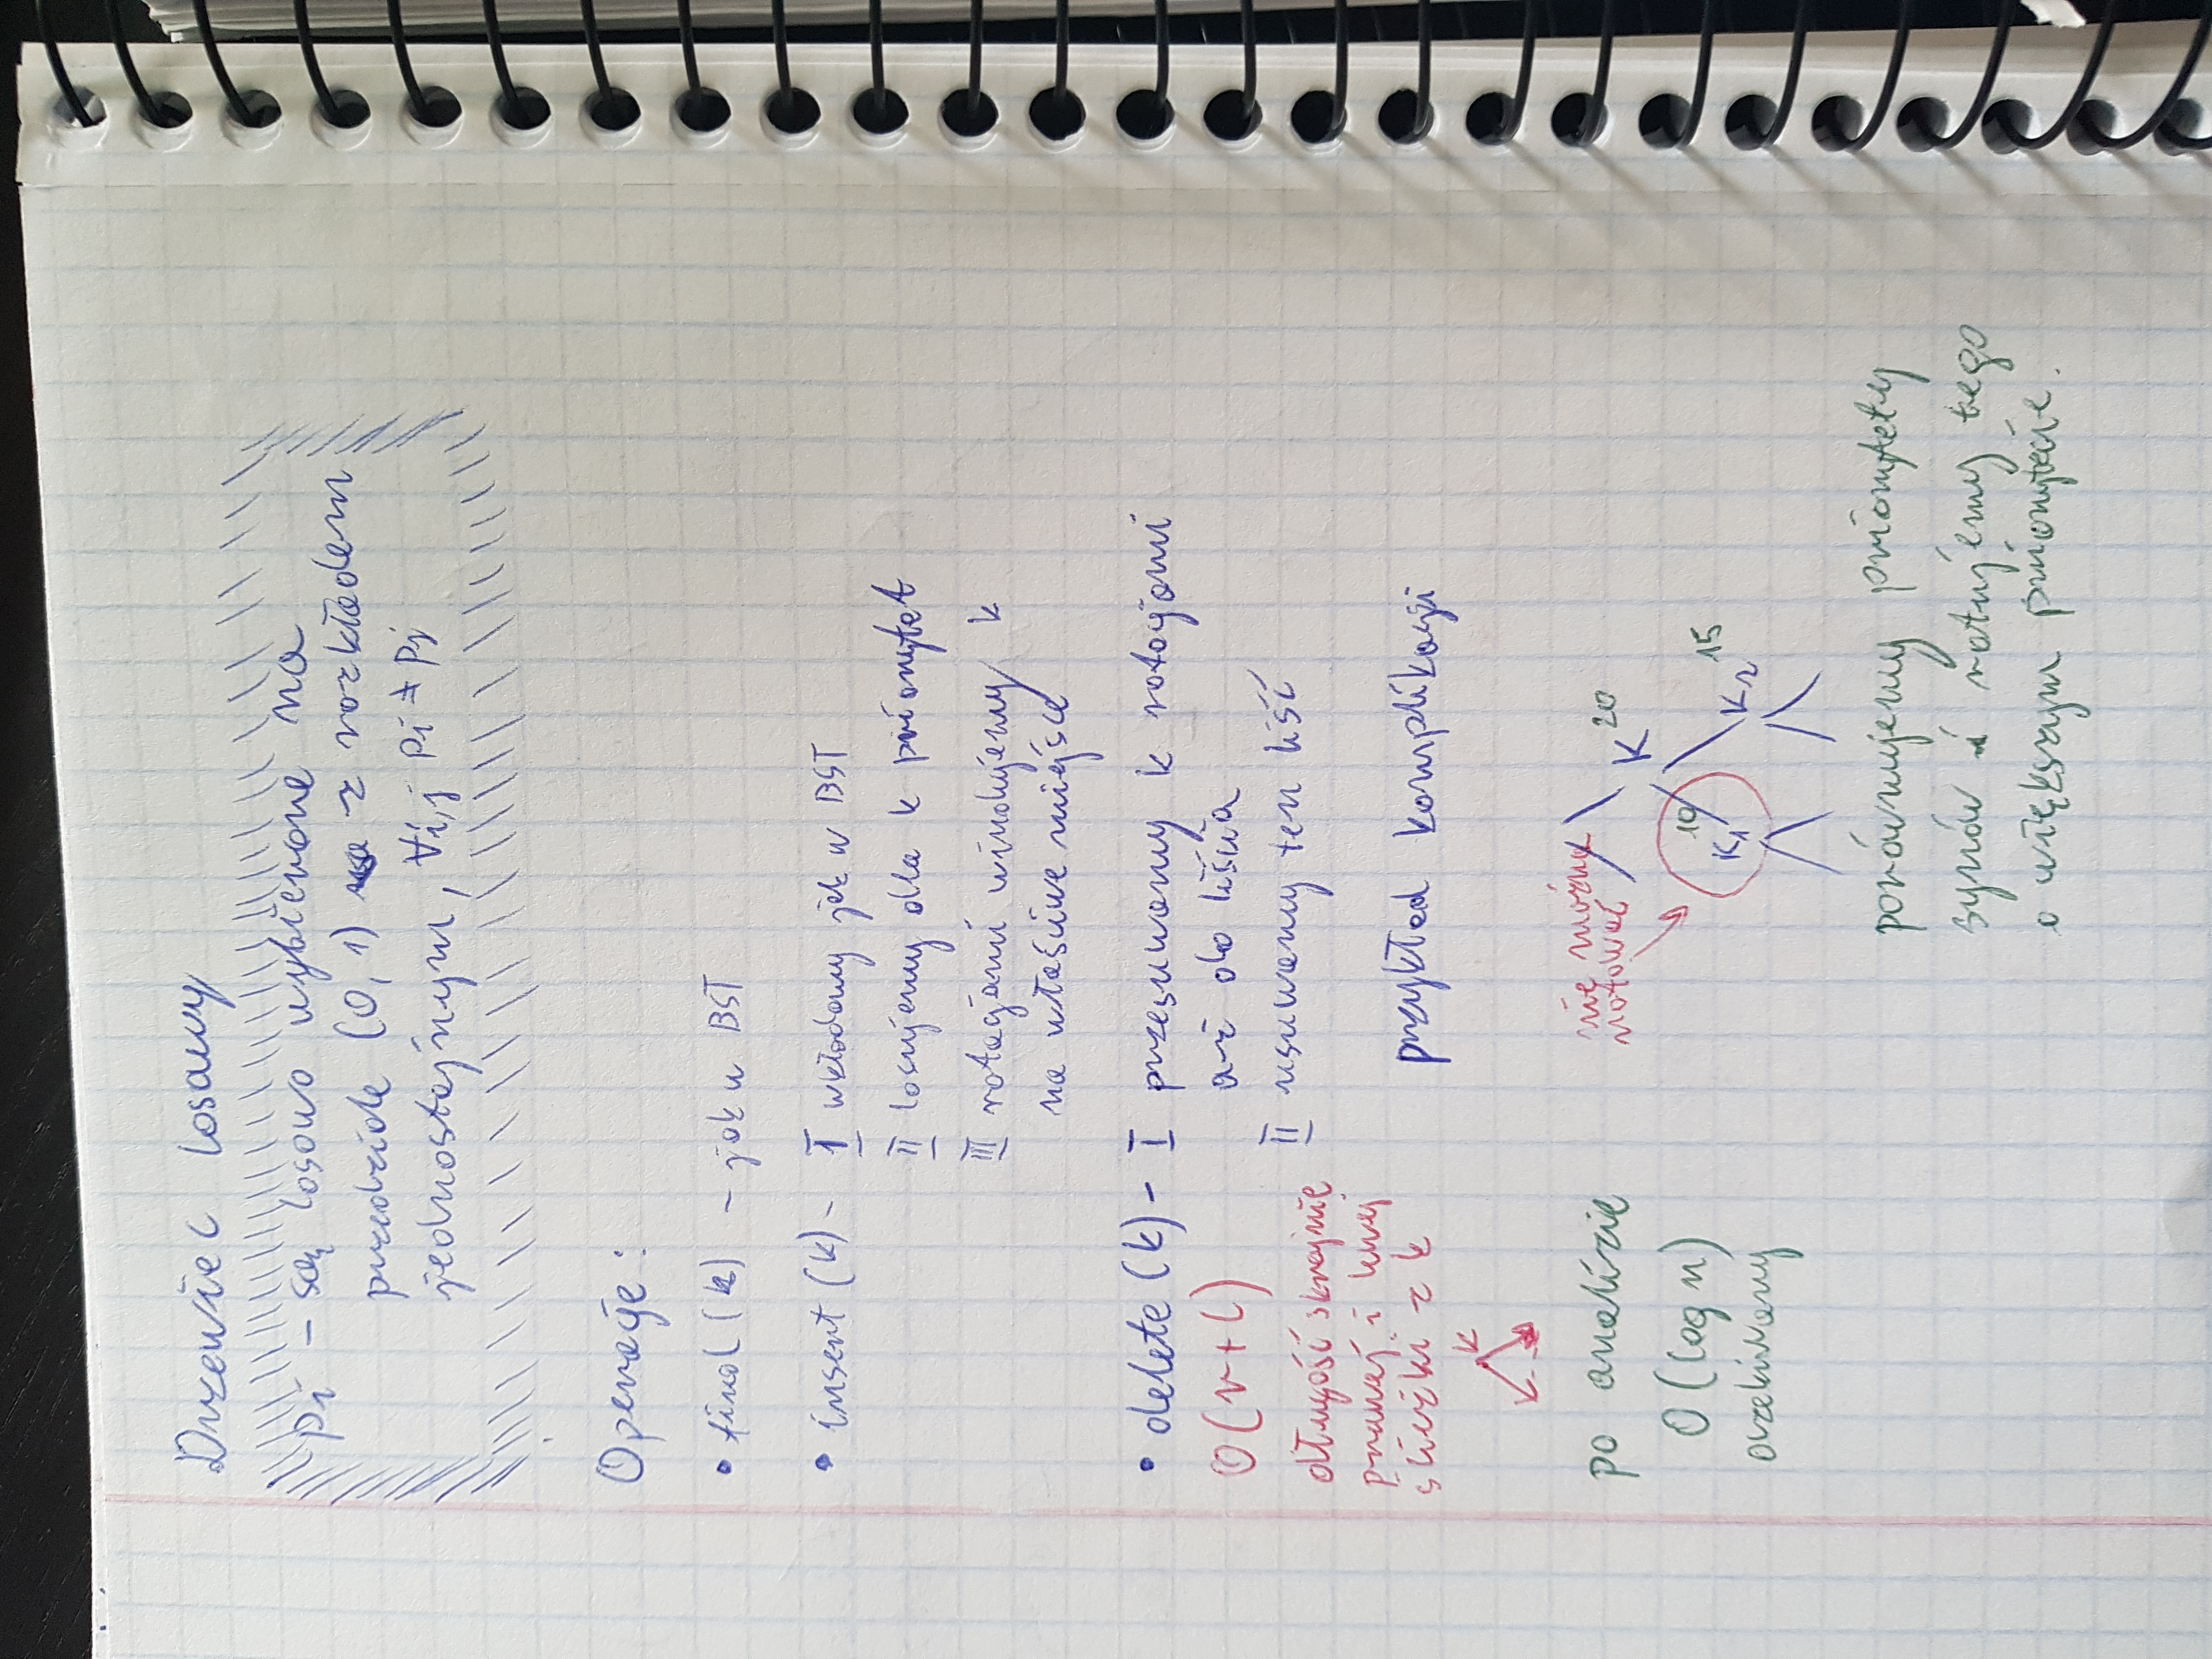 Drzewiec losowy
pi - są losowo wybierane na
przedziale (0, 1) z rozkładem
jednostajnym, ∀i,j pi ≠ pj
Operacje:
• find (k) - jak w BST
• insert (k) - I wkładamy jak w BST
II losujemy dla k priorytet
III rotacjami windujemy k
na właściwe miejsce
• delete (k) - I przesuwamy k rotacjami
aż do liścia
II usuwamy ten liść
O(r+l)
długość skrajnie
prawej i lewej
ścieżki z k
k
K
po analizie
O(log n)
oczekiwany
przykład komplikacji
nie można
rotować
K 20
10 K1
K2 15
porównujemy priorytety
synów i rotujemy tego
o większym priorytecie.